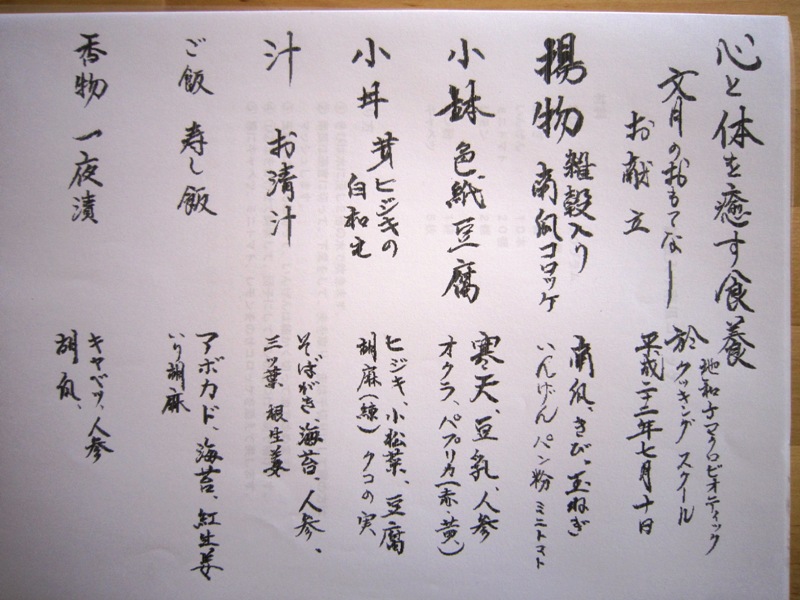 心と体を癒す食養
文月のおもてなし
お献立
地和子マクロビオティック
於 クッキングスクール
平成二十二年七月十日
揚物 雑穀入り
南瓜コロッケ
南瓜、きび、玉ねぎ
いんげん パン粉 ミニトマト
小鉢 色紙豆腐
寒天、豆乳、人参
オクラ、パプリカ(赤・黄)
小丼 茸ヒジキの
白和え
ヒジキ、小松菜、豆腐
胡麻(練) クコの実
汁 お清汁
そばがき、海苔、人参、
三ッ葉 根生姜
ご飯 寿し飯
アボカド、海苔、紅生姜
いり胡麻
香物 一夜漬
キャベツ、人参
胡瓜、